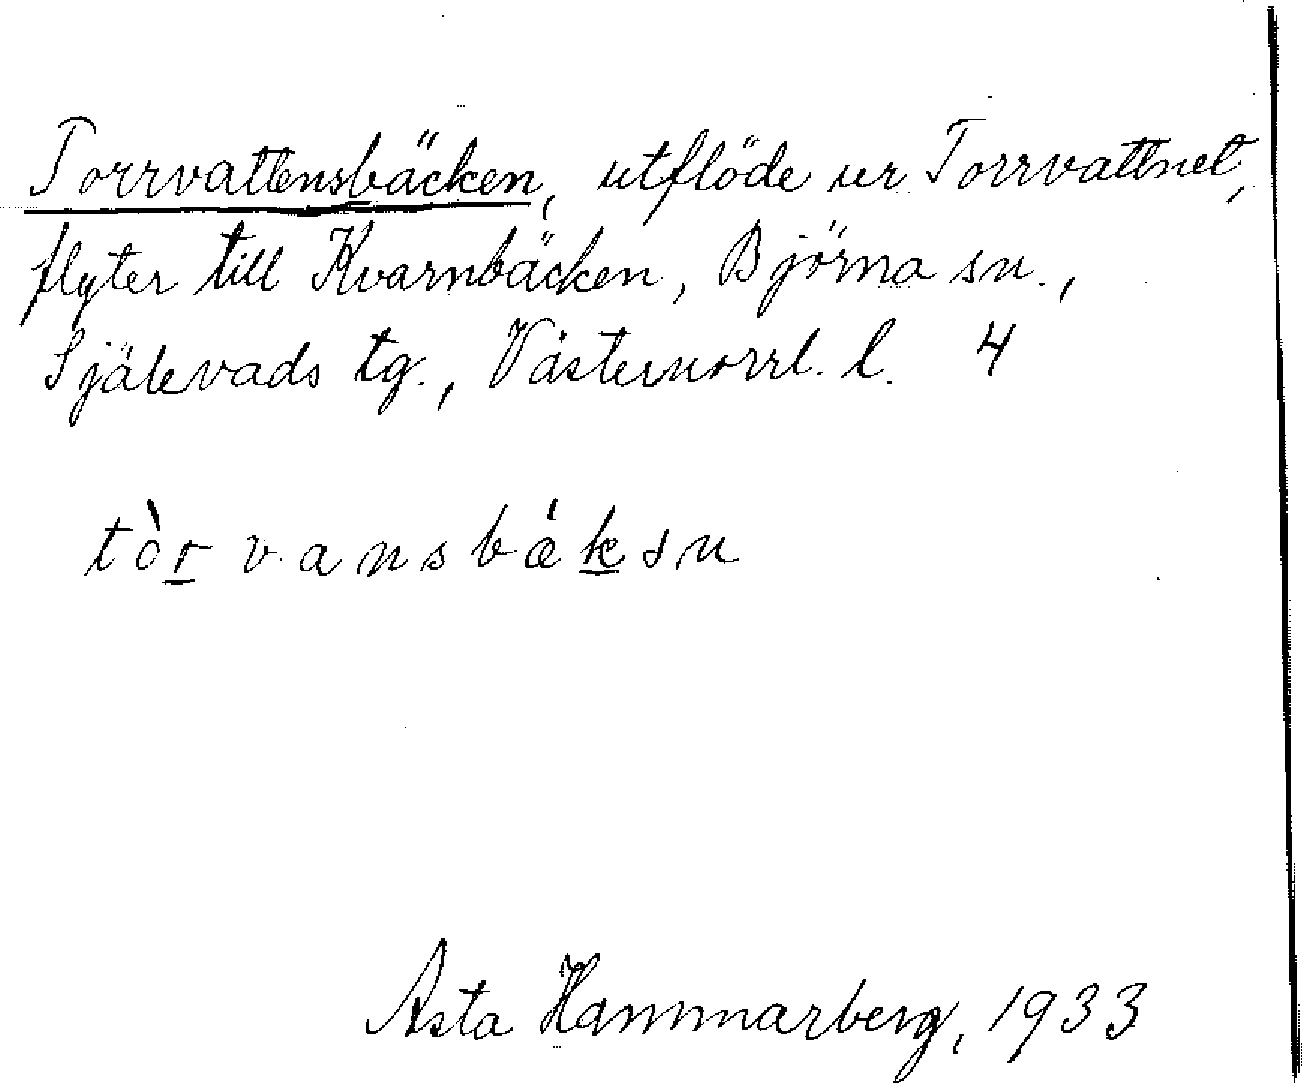 Torrvattensbäcken, utflöde ur Torrvattnet,
flyter till Kvarnbäcken, Björna sn.,
Själevads tg., Västernorrl. l. 4
tòr̲ vansbǽk̲sn
Asta Hammarberg, 1933